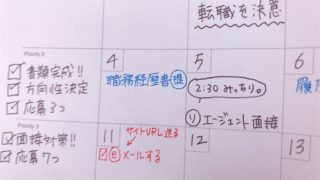 転職を決意
Priority 2
☑ 書類完成!!
☑ 方向性決定
☑ 応募3つ
4
職務経歴書提
5
2:30 みっちり。
リ エージェント面接
6
履
Priority 3
☑ 面接対策!!
☑ 応募7つ
11
サイトURL送る
☑ e メールする
12
13